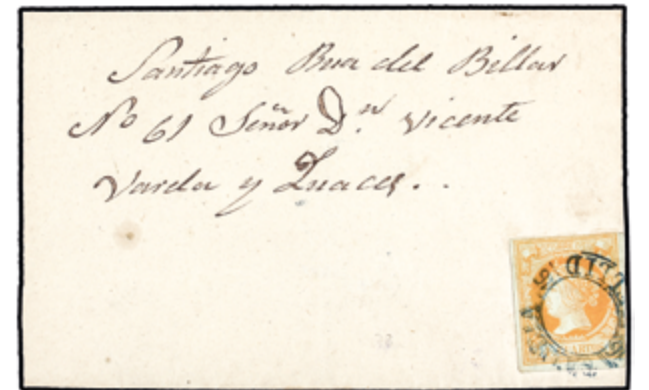 Santiago Rua del Billar
No 61 Señor Dn. Vicente
Varela y Luaces.